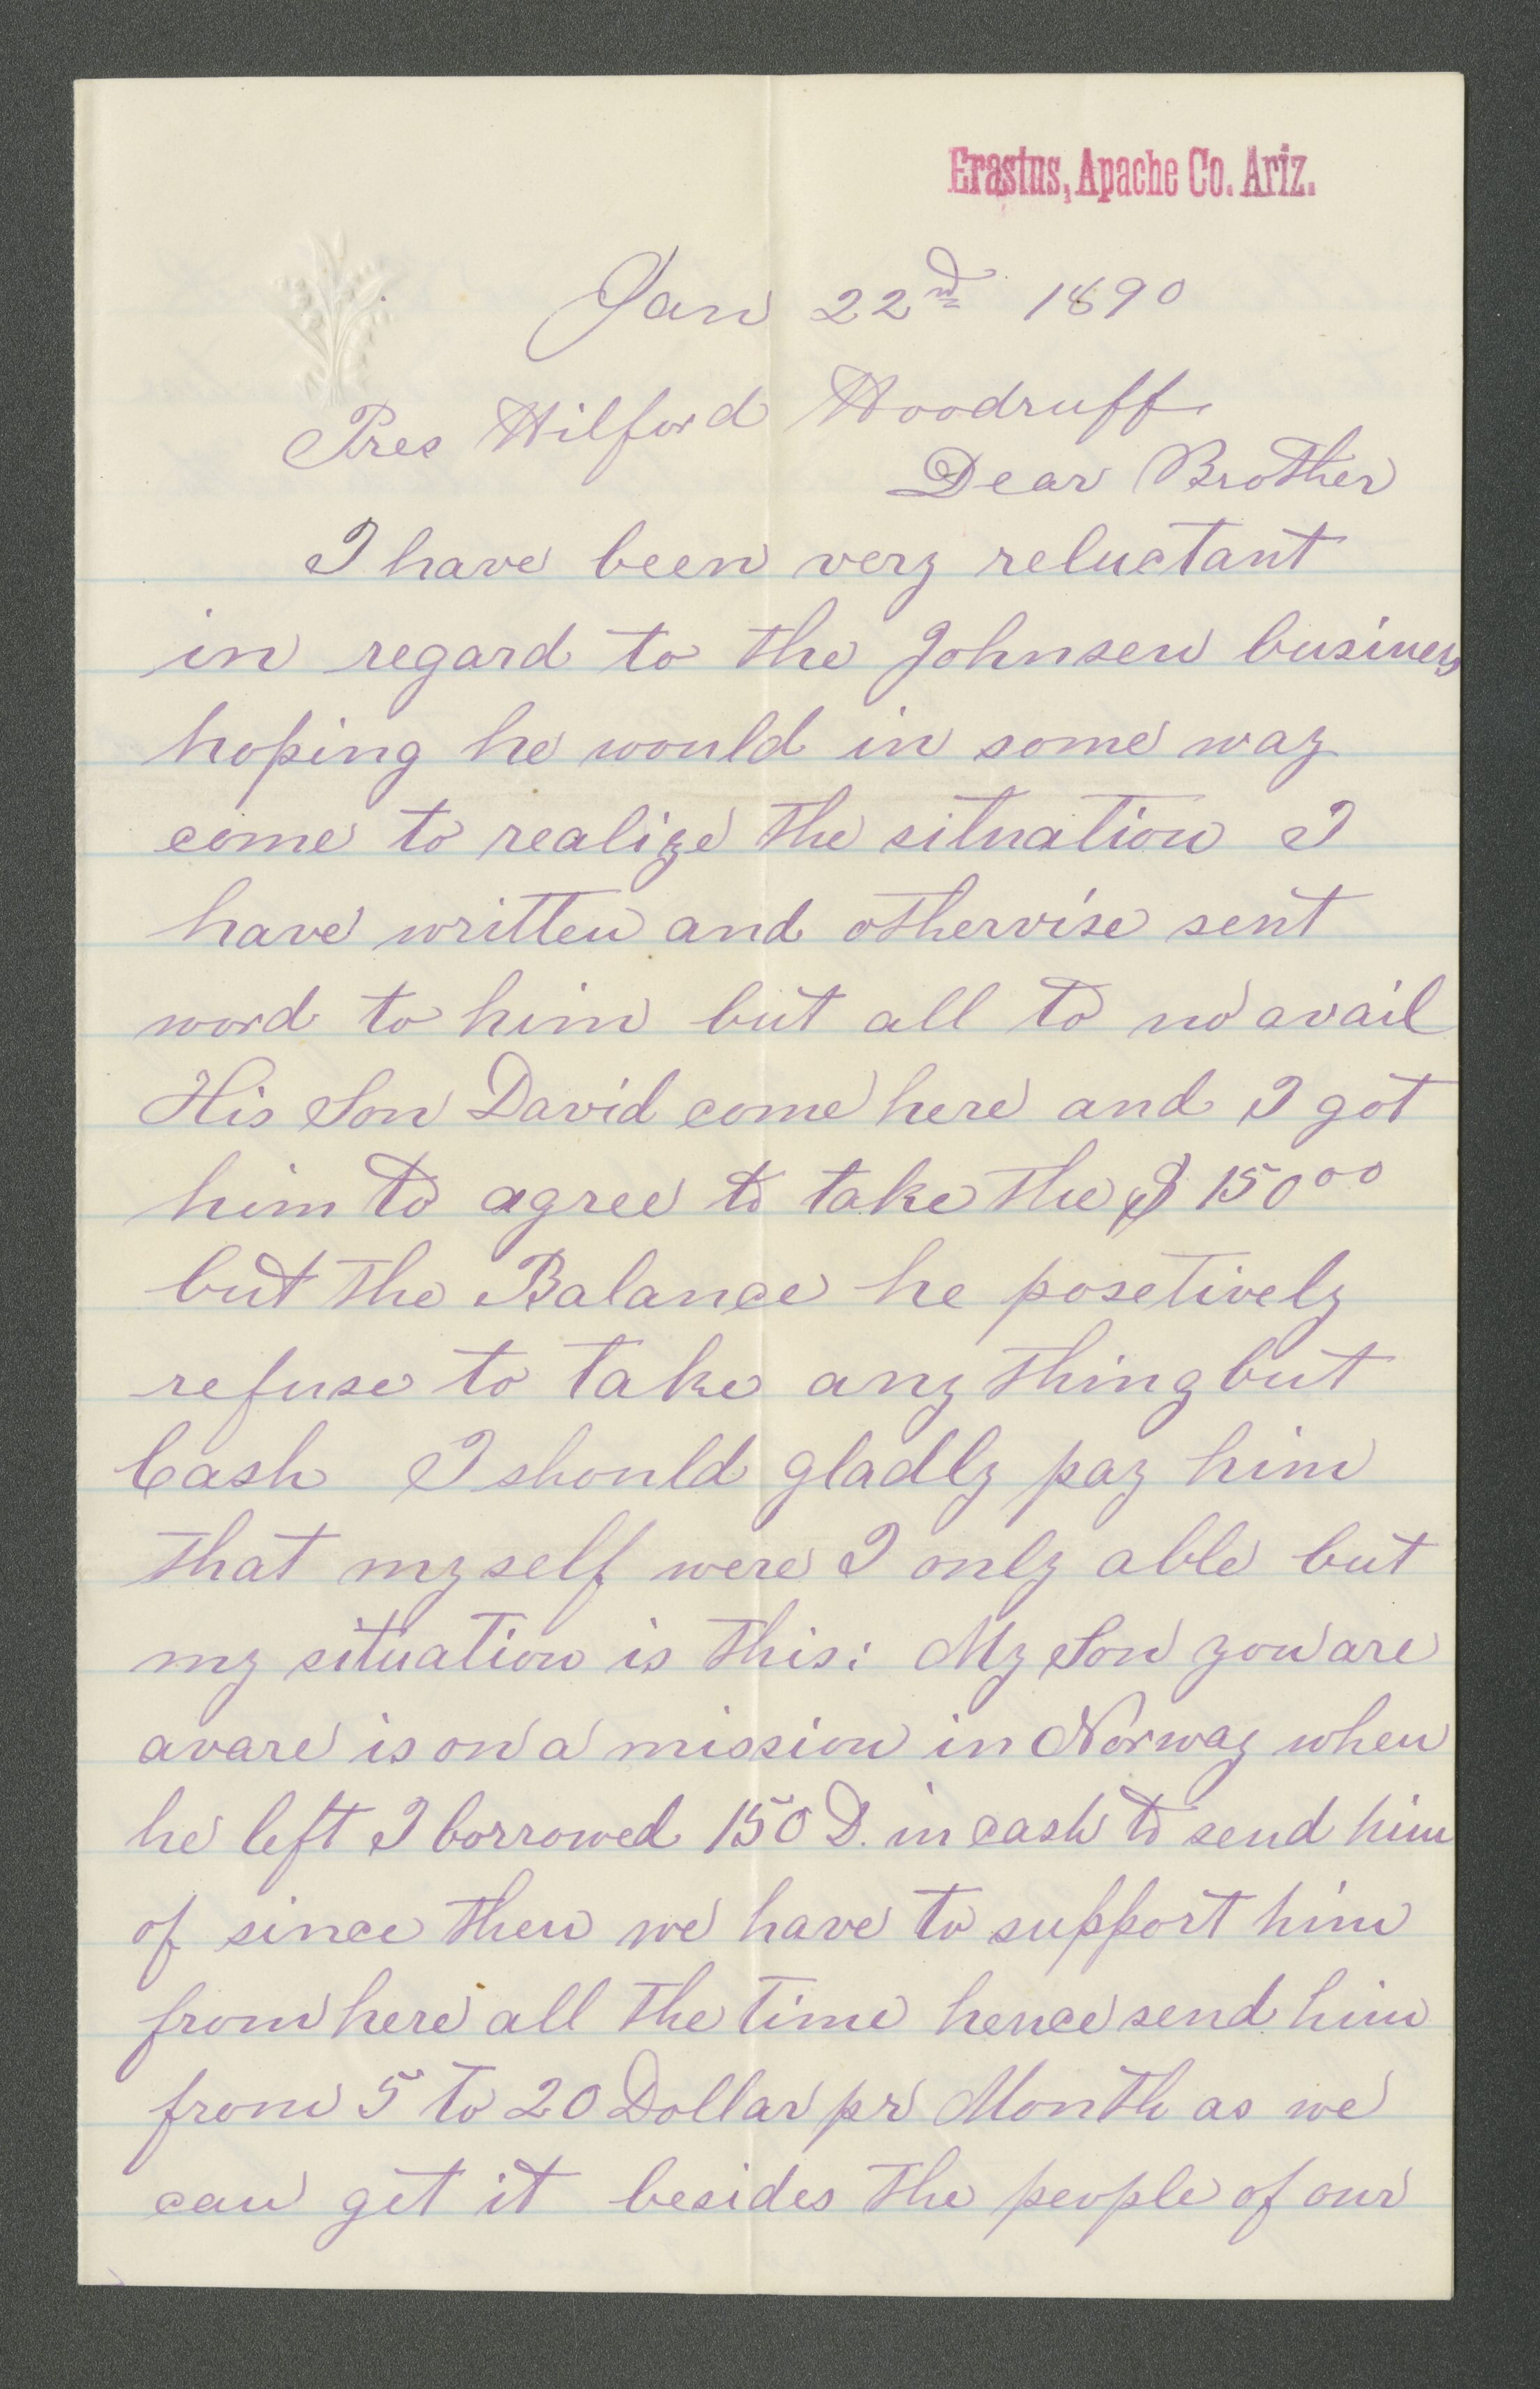 Erastus, Apache Co. Ariz.
Jan 22nd 1890
Pres Wilford Woodruff
Dear Brother
I have been very reluctant
in regard to the Johnsen business
hoping he would in some way
come to realize the situation I
have written and othervise sent
word to him but all to no avail
His Son David come here and I got
him to agree to take the $ 150oo
but the Balance he posetively
refuse to take any thing but
Cash I should gladly pay him
that myself were I only able but
my situation is this: My Son you are
avare is on a mission in Norway when
he left I borrowed 150 D. in cash to send him
of since then we have to support him
from here all the time hence send him
from 5 to 20 Dollar pr Month as we
can get it besides the people of our